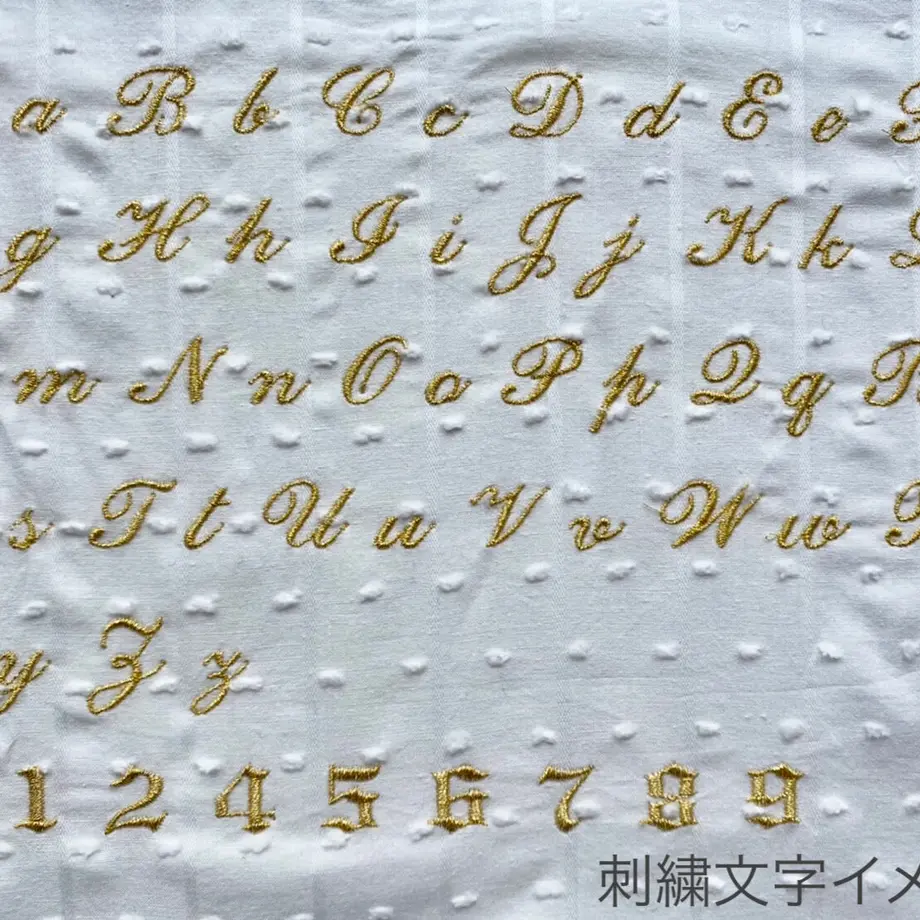 a B b C c D d E e
g H h I i J j K k
m N n O o P p Q q R
s T t U u V v W w
y Z z
1 2 4 5 6 7 8 9
刺繍文字イメ